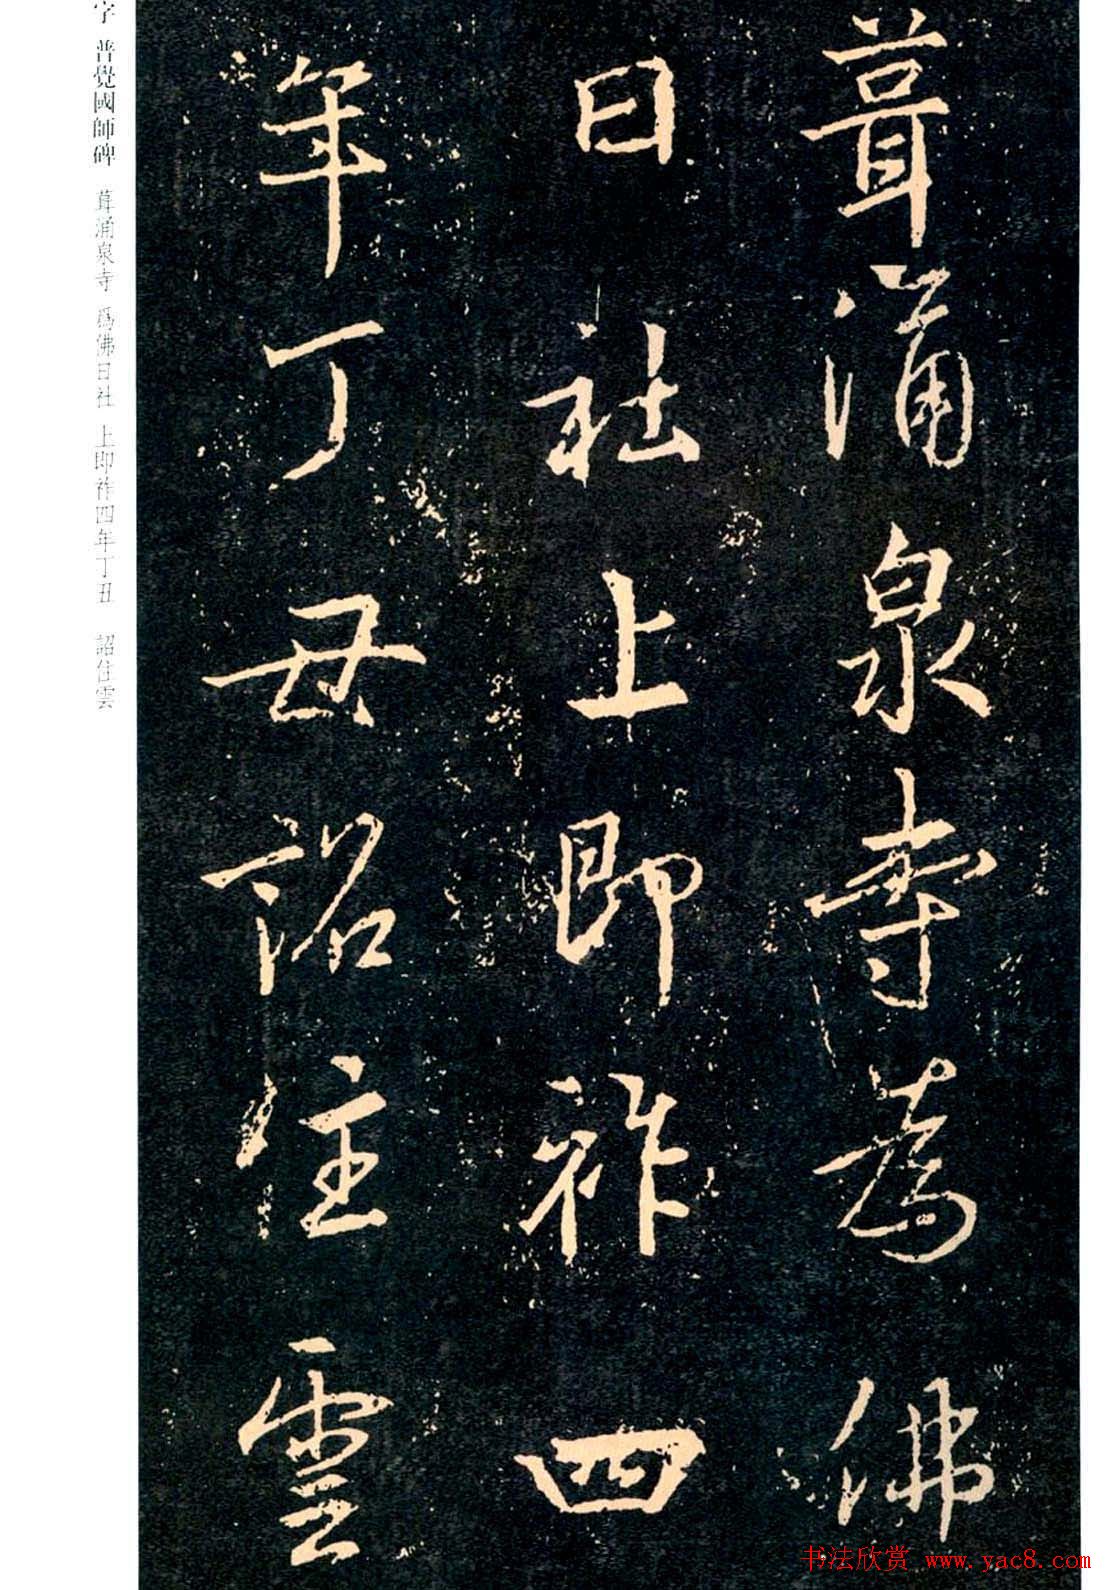 葺涌泉寺為佛
日社上即祚四
年丁丑詔住雲
字 普覺國師碑 葺涌泉寺 爲佛日社 上即祚四年丁丑 詔住雲
书法欣赏 www.yac8.com